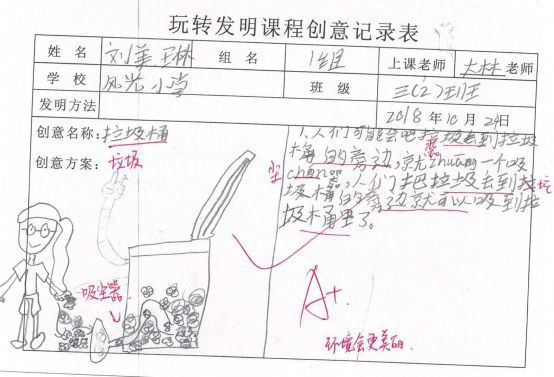 玩转发明课程创意记录表
姓 名 刘美琳 组 名 1组 上课老师 大林 老师
学 校 风光小学 班 级 三(2)班
发明方法 2018 年 10 月 24日
创意名称:垃圾桶
创意方案:垃圾
1.人们可能会吧垃圾丢到垃圾
桶的旁边,就zhuang一个吸
尘 chen器,人们把垃圾丢到垃
圾桶的旁边就可以吸到垃
圾桶里了。
吸尘器
A+
环境会更美丽.